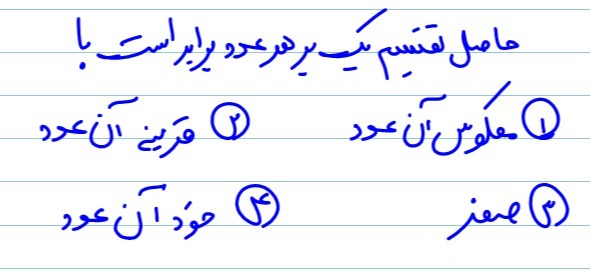 حاصل تقسیم یک بر هر عدد برابر است با
۱ معکوس آن عدد ۲ قرینه آن عدد
۳ صفر ۴ خود آن عدد